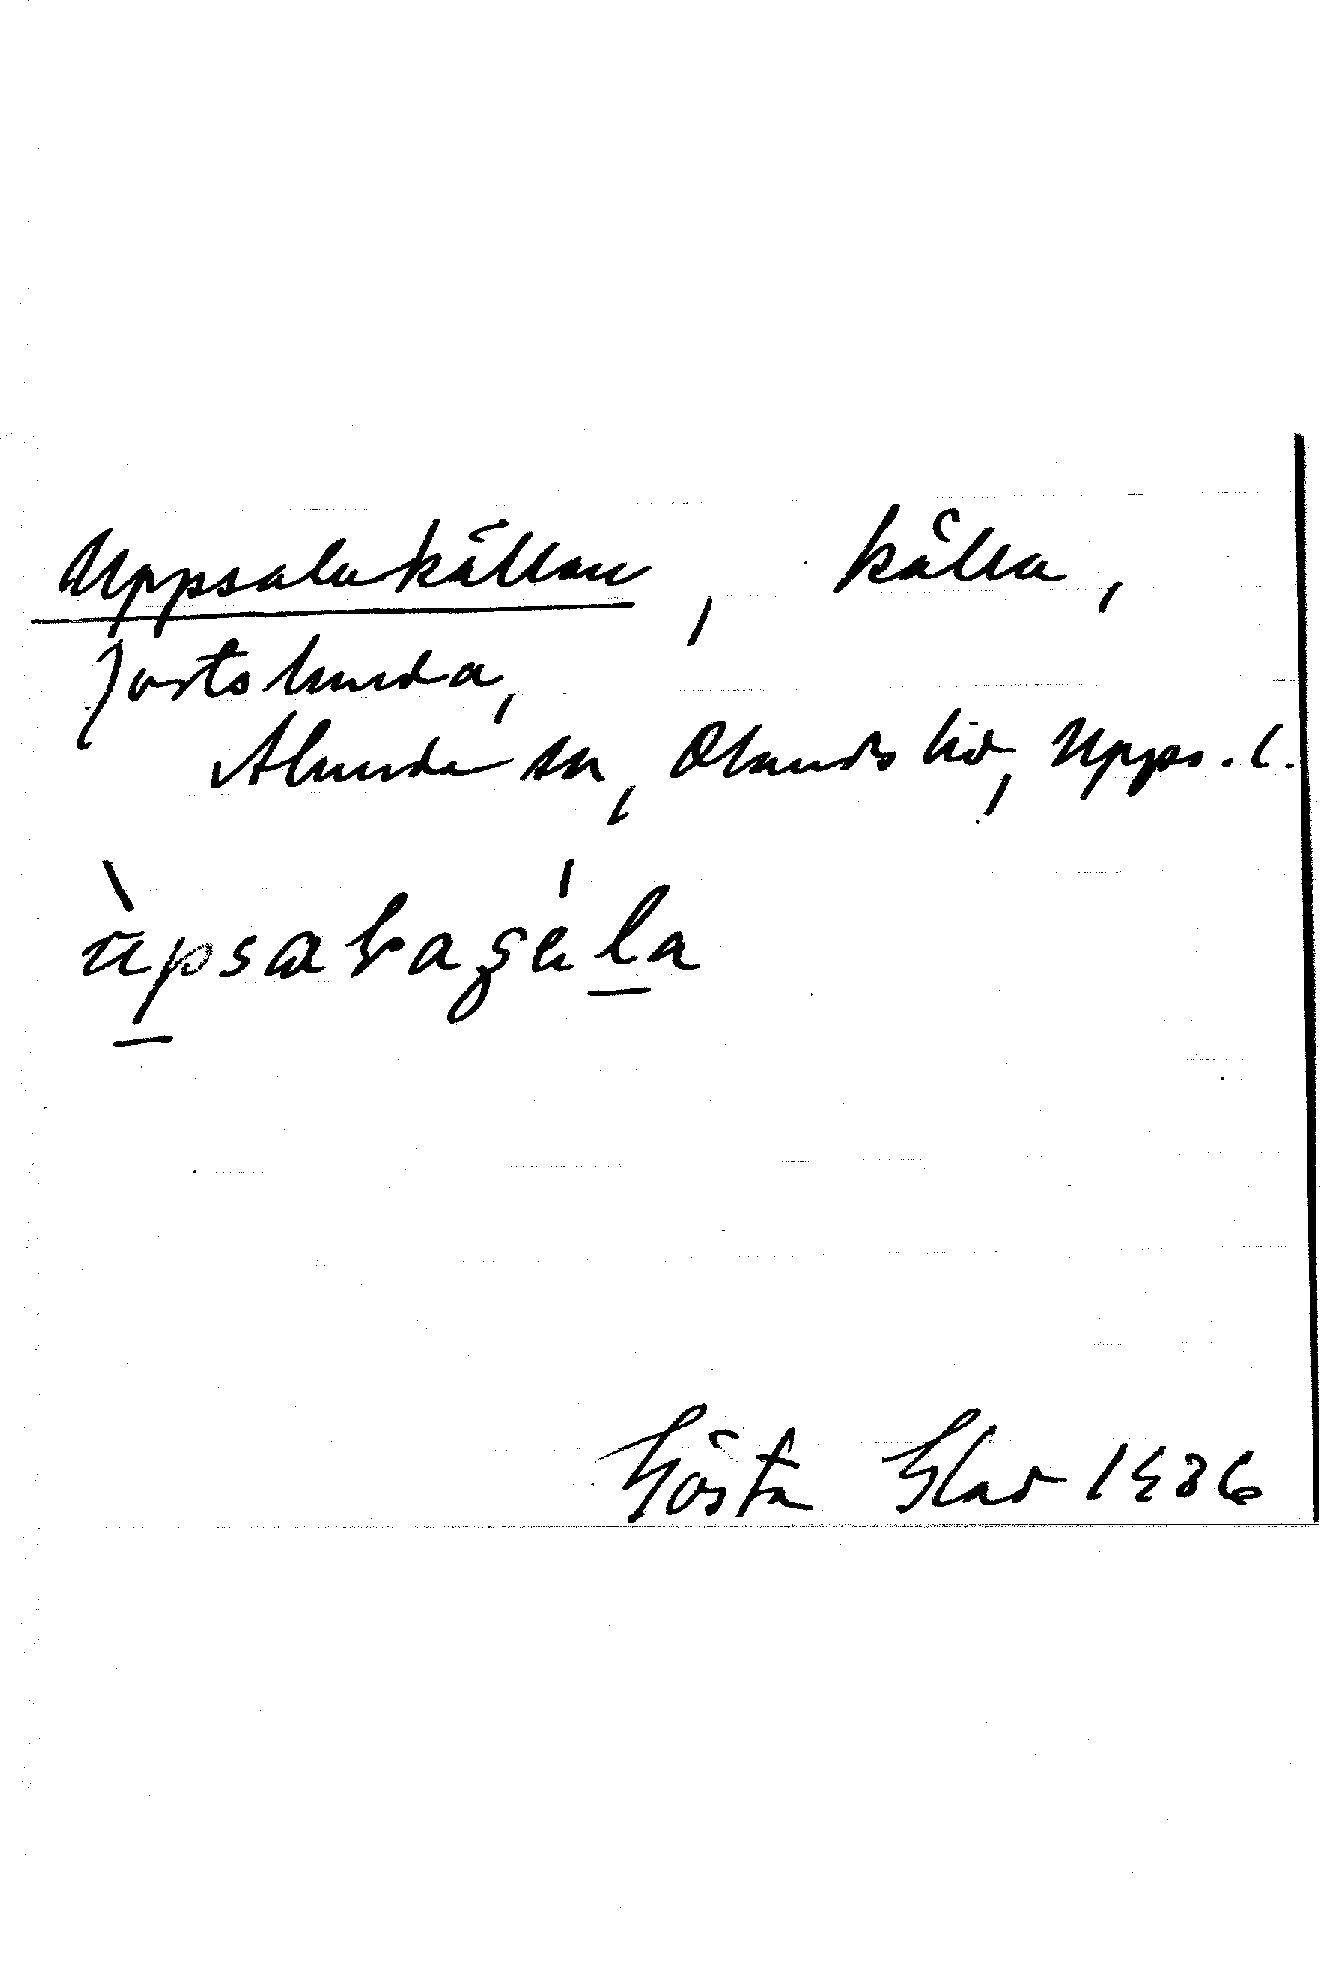 Uppsalakällan, källa,
Jortslunda,
Alunda sn, Olands hd, Upps. l.
Gösta Glad 1936